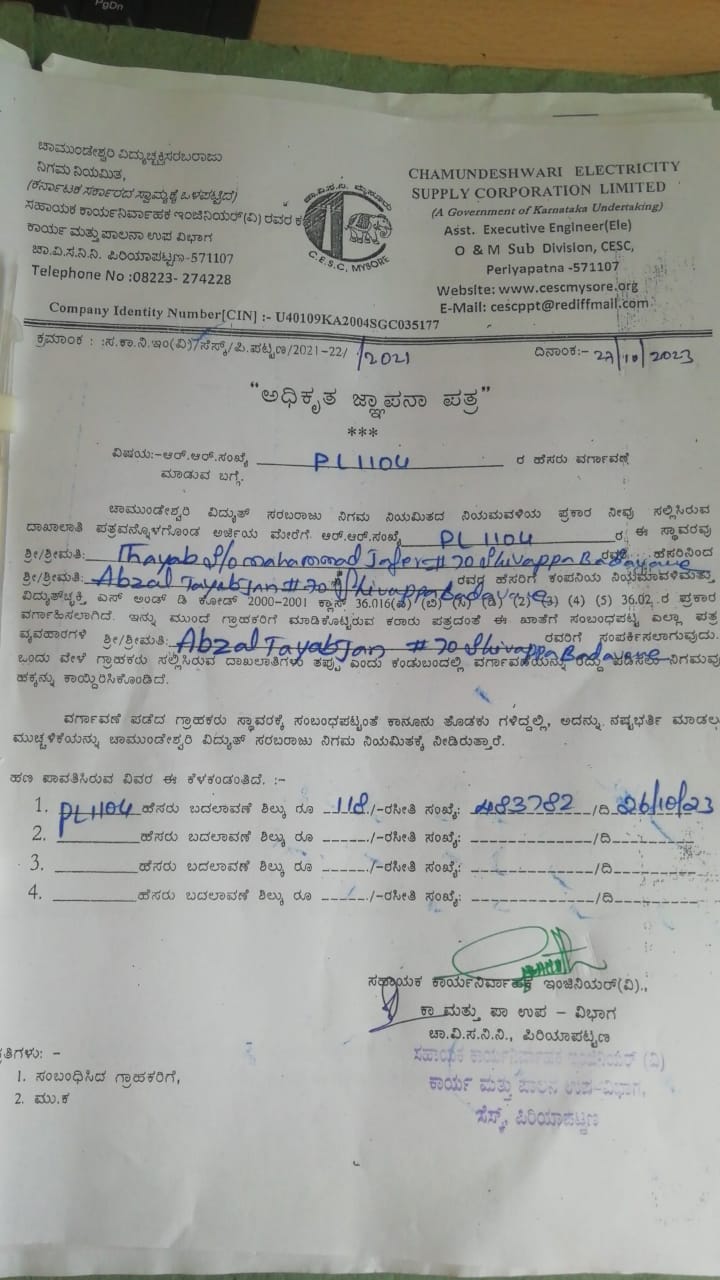 PgDn
ಚಾಮುಂಡೇಶ್ವರಿ ವಿದ್ಯುಚ್ಛಕ್ತಿಸರಬರಾಜು
ನಿಗಮ ನಿಯಮಿತ,
(ಕರ್ನಾಟಕ ಸರ್ಕಾರದ ಸ್ವಾಮ್ಯಕ್ಕೆ ಒಳಪಟ್ಟಿದೆ)
ಸಹಾಯಕ ಕಾರ್ಯನಿರ್ವಾಹಕ ಇಂಜಿನಿಯರ್(ವಿ) ರವರ ಕ
ಕಾರ್ಯ ಮತ್ತು ಪಾಲನಾ ಉಪ ವಿಭಾಗ
ಚಾ.ವಿ.ಸ.ನಿ.ನಿ. ಪಿರಿಯಾಪಟ್ಟಣ-571107
Telephone No :08223- 274228
ಚಾ.ವಿ.ಸ.ನಿ. ಮೈಸೂರು
C.E.S.C, MYSORE
CHAMUNDESHWARI ELECTRICITY
SUPPLY CORPORATION LIMITED
(A Government of Karnataka Undertaking)
Asst. Executive Engineer(Ele)
O & M Sub Division, CESC,
Periyapatna -571107
Website: www.cescmysore.org
E-Mail: cescppt@rediffmail.com
Company Identity Number[CIN] :- U40109KA2004SGC035177
ಕ್ರಮಾಂಕ : :ಸ.ಕಾ.ನಿ.ಇಂ(ವಿ)/ಸೆಸ್ಕ್/ಪಿ.ಪಟ್ಟಣ/2021-22/ /2021 ದಿನಾಂಕ:- 27/10/2023
"ಅಧಿಕೃತ ಜ್ಞಾಪನಾ ಪತ್ರ"
***
ವಿಷಯ:-ಆರ್.ಆರ್.ಸಂಖ್ಯೆ PL1104 ರ ಹೆಸರು ವರ್ಗಾವಣೆ
ಮಾಡುವ ಬಗ್ಗೆ.
ಚಾಮುಂಡೇಶ್ವರಿ ವಿದ್ಯುತ್ ಸರಬರಾಜು ನಿಗಮ ನಿಯಮಿತದ ನಿಯಮವಳಿಯ ಪ್ರಕಾರ ನೀವು ಸಲ್ಲಿಸಿರುವ
ದಾಖಾಲಾತಿ ಪತ್ರವನ್ನೊಳಗೊಂಡ ಅರ್ಜಿಯ ಮೇರೆಗೆ ಆರ್.ಆರ್.ಸಂಖ್ಯೆ PL 1104 ರ ಈ ಸ್ಥಾವರವು
ಶ್ರೀ/ಶ್ರೀಮತಿ: Thayab S/o mahammad Jafer #70 Shivappa Badavane ರವರ ಹೆಸರಿನಿಂದ
ಶ್ರೀ/ಶ್ರೀಮತಿ: Abzal Tayabjan #70 Shivappa Badavane ರವರ ಹೆಸರಿಗೆ ಕಂಪನಿಯ ನಿಯಮಾವಳಿಮತ್ತು
ವಿದ್ಯುತ್‌ಚ್ಛಕ್ತಿ ಎಸ್ ಅಂಡ್ ಡಿ ಕೋಡ್ 2000-2001 ಕ್ಲಾಸ್ 36.016(ಎ) (ಬಿ) (ಸಿ) (ಡಿ) (2) (3) (4) (5) 36.02 ರ ಪ್ರಕಾರ
ವರ್ಗಾಹಿಸಲಾಗಿದೆ. ಇನ್ನು ಮುಂದೆ ಗ್ರಾಹಕರಿಗೆ ಮಾಡಿಕೊಟ್ಟಿರುವ ಕರಾರು ಪತ್ರದಂತೆ ಈ ಖಾತೆಗೆ ಸಂಬಂಧಪಟ್ಟ ಎಲ್ಲಾ ಪತ್ರ
ವ್ಯವಹಾರಗಳಿ ಶ್ರೀ/ಶ್ರೀಮತಿ: Abzal Tayabjan #70 Shivappa Badavane ರವರಿಗೆ ಸಂಪರ್ಕಿಸಲಾಗುವುದು.
ಒಂದು ವೇಳೆ ಗ್ರಾಹಕರು ಸಲ್ಲಿಸಿರುವ ದಾಖಲಾತಿಗಳು ತಪ್ಪು ಎಂದು ಕಂಡುಬಂದಲ್ಲಿ ವರ್ಗಾವಣೆಯನ್ನು ರದ್ದು ಪಡಿಸಲು ನಿಗಮವು
ಹಕ್ಕನ್ನು ಕಾಯ್ದಿರಿಸಿಕೊಂಡಿದೆ.
ವರ್ಗಾವಣೆ ಪಡೆದ ಗ್ರಾಹಕರು ಸ್ಥಾವರಕ್ಕೆ ಸಂಬಂಧಪಟ್ಟಂತೆ ಕಾನೂನು ತೊಡಕು ಗಳಿದ್ದಲ್ಲಿ, ಅದನ್ನು ನಷ್ಟಭರ್ತಿ ಮಾಡಲ
ಮುಚ್ಚಳಿಕೆಯನ್ನು ಚಾಮುಂಡೇಶ್ವರಿ ವಿದ್ಯುತ್ ಸರಬರಾಜು ನಿಗಮ ನಿಯಮಿತಕ್ಕೆ ನೀಡಿರುತ್ತಾರೆ.
ಹಣ ಪಾವತಿಸಿರುವ ವಿವರ ಈ ಕೆಳಕಂಡಂತಿದೆ. :-
1. PL1104 ಹೆಸರು ಬದಲಾವಣೆ ಶಿಲ್ಕು ರೂ 118/-ರಸೀತಿ ಸಂಖ್ಯೆ: 483782 /ದಿ 26/10/23
2. ಹೆಸರು ಬದಲಾವಣೆ ಶಿಲ್ಕು ರೂ /-ರಸೀತಿ ಸಂಖ್ಯೆ: /ದಿ
3. ಹೆಸರು ಬದಲಾವಣೆ ಶಿಲ್ಕು ರೂ /-ರಸೀತಿ ಸಂಖ್ಯೆ: /ದಿ
4. ಹೆಸರು ಬದಲಾವಣೆ ಶಿಲ್ಕು ರೂ /-ರಸೀತಿ ಸಂಖ್ಯೆ: /ದಿ
ಸಹಾಯಕ ಕಾರ್ಯನಿರ್ವಾಹಕ ಇಂಜಿನಿಯರ್(ವಿ).,
ಕಾ ಮತ್ತು ಪಾ ಉಪ – ವಿಭಾಗ
ಚಾ.ವಿ.ಸ.ನಿ.ನಿ., ಪಿರಿಯಾಪಟ್ಟಣ
ಸಹಾಯಕ ಕಾರ್ಯನಿರ್ವಾಹಕ ಇಂಜಿನಿಯರ್ (ವಿ)
ಕಾರ್ಯ ಮತ್ತು ಪಾಲನ ಉಪ-ವಿಭಾಗ,
ಸೆಸ್ಕ್, ಪಿರಿಯಾಪಟ್ಟಣ
ತಿಗಳು: –
1. ಸಂಬಂಧಿಸಿದ ಗ್ರಾಹಕರಿಗೆ,
2. ಮು.ಕ